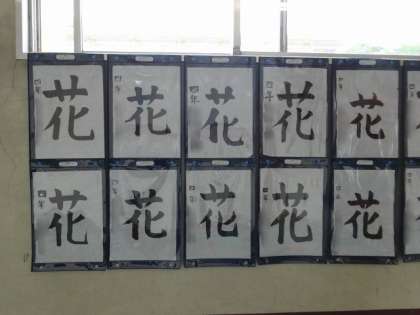 四年 花
四年 花
四年 花
四年 花
花
四年 花
四年 花
四年 花
四年 花
花